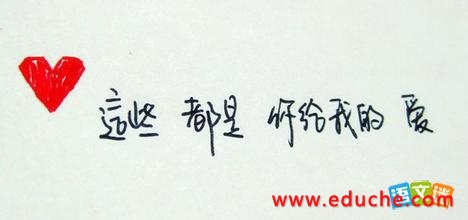 這些 都是 你给我的 爱
语文迷
www.eduche.com